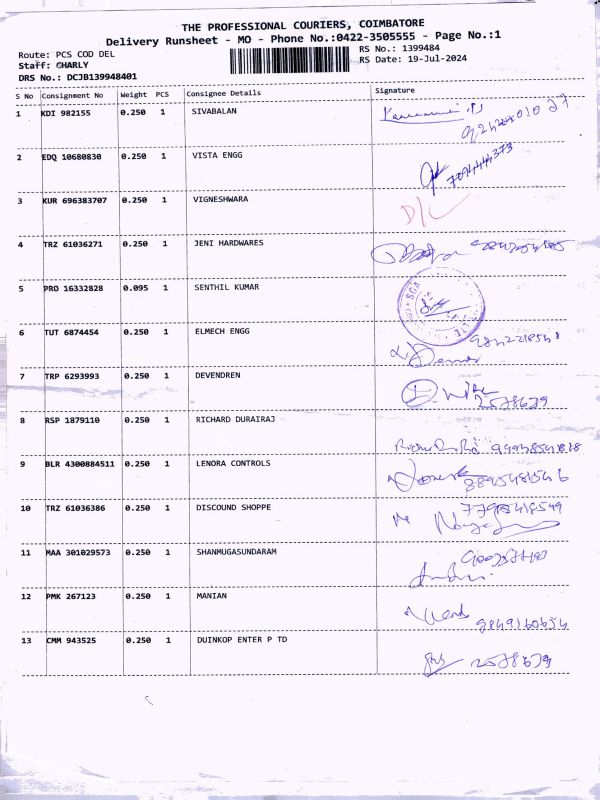 THE PROFESSIONAL COURIERS, COIMBATORE
Delivery Runsheet - MO - Phone No.:0422-3505555 - Page No.:1
Route: PCS COD DEL
RS No.: 1399484
Staff: CHARLY
RS Date: 19-Jul-2024
DRS No.: DCJB139948401
S No Consignment No Weight PCS Consignee Details Signature
1 KDI 982155 0.250 1 SIVABALAN
2 EDQ 10680830 0.250 1 VISTA ENGG
3 KUR 696383707 0.250 1 VIGNESHWARA D/L
4 TRZ 61036271 0.250 1 JENI HARDWARES
5 PRO 16332828 0.095 1 SENTHIL KUMAR
6 TUT 6874454 0.250 1 ELMECH ENGG
7 TRP 6293993 0.250 1 DEVENDREN
2578639
8 RSP 1879110 0.250 1 RICHARD DURAIRAJ
9 BLR 4300884511 0.250 1 LENORA CONTROLS
10 TRZ 61036386 0.250 1 DISCOUND SHOPPE
11 MAA 301029573 0.250 1 SHANMUGASUNDARAM
12 PMK 267123 0.250 1 MANIAN
13 CMM 943525 0.250 1 DUINKOP ENTER P TD
2578639